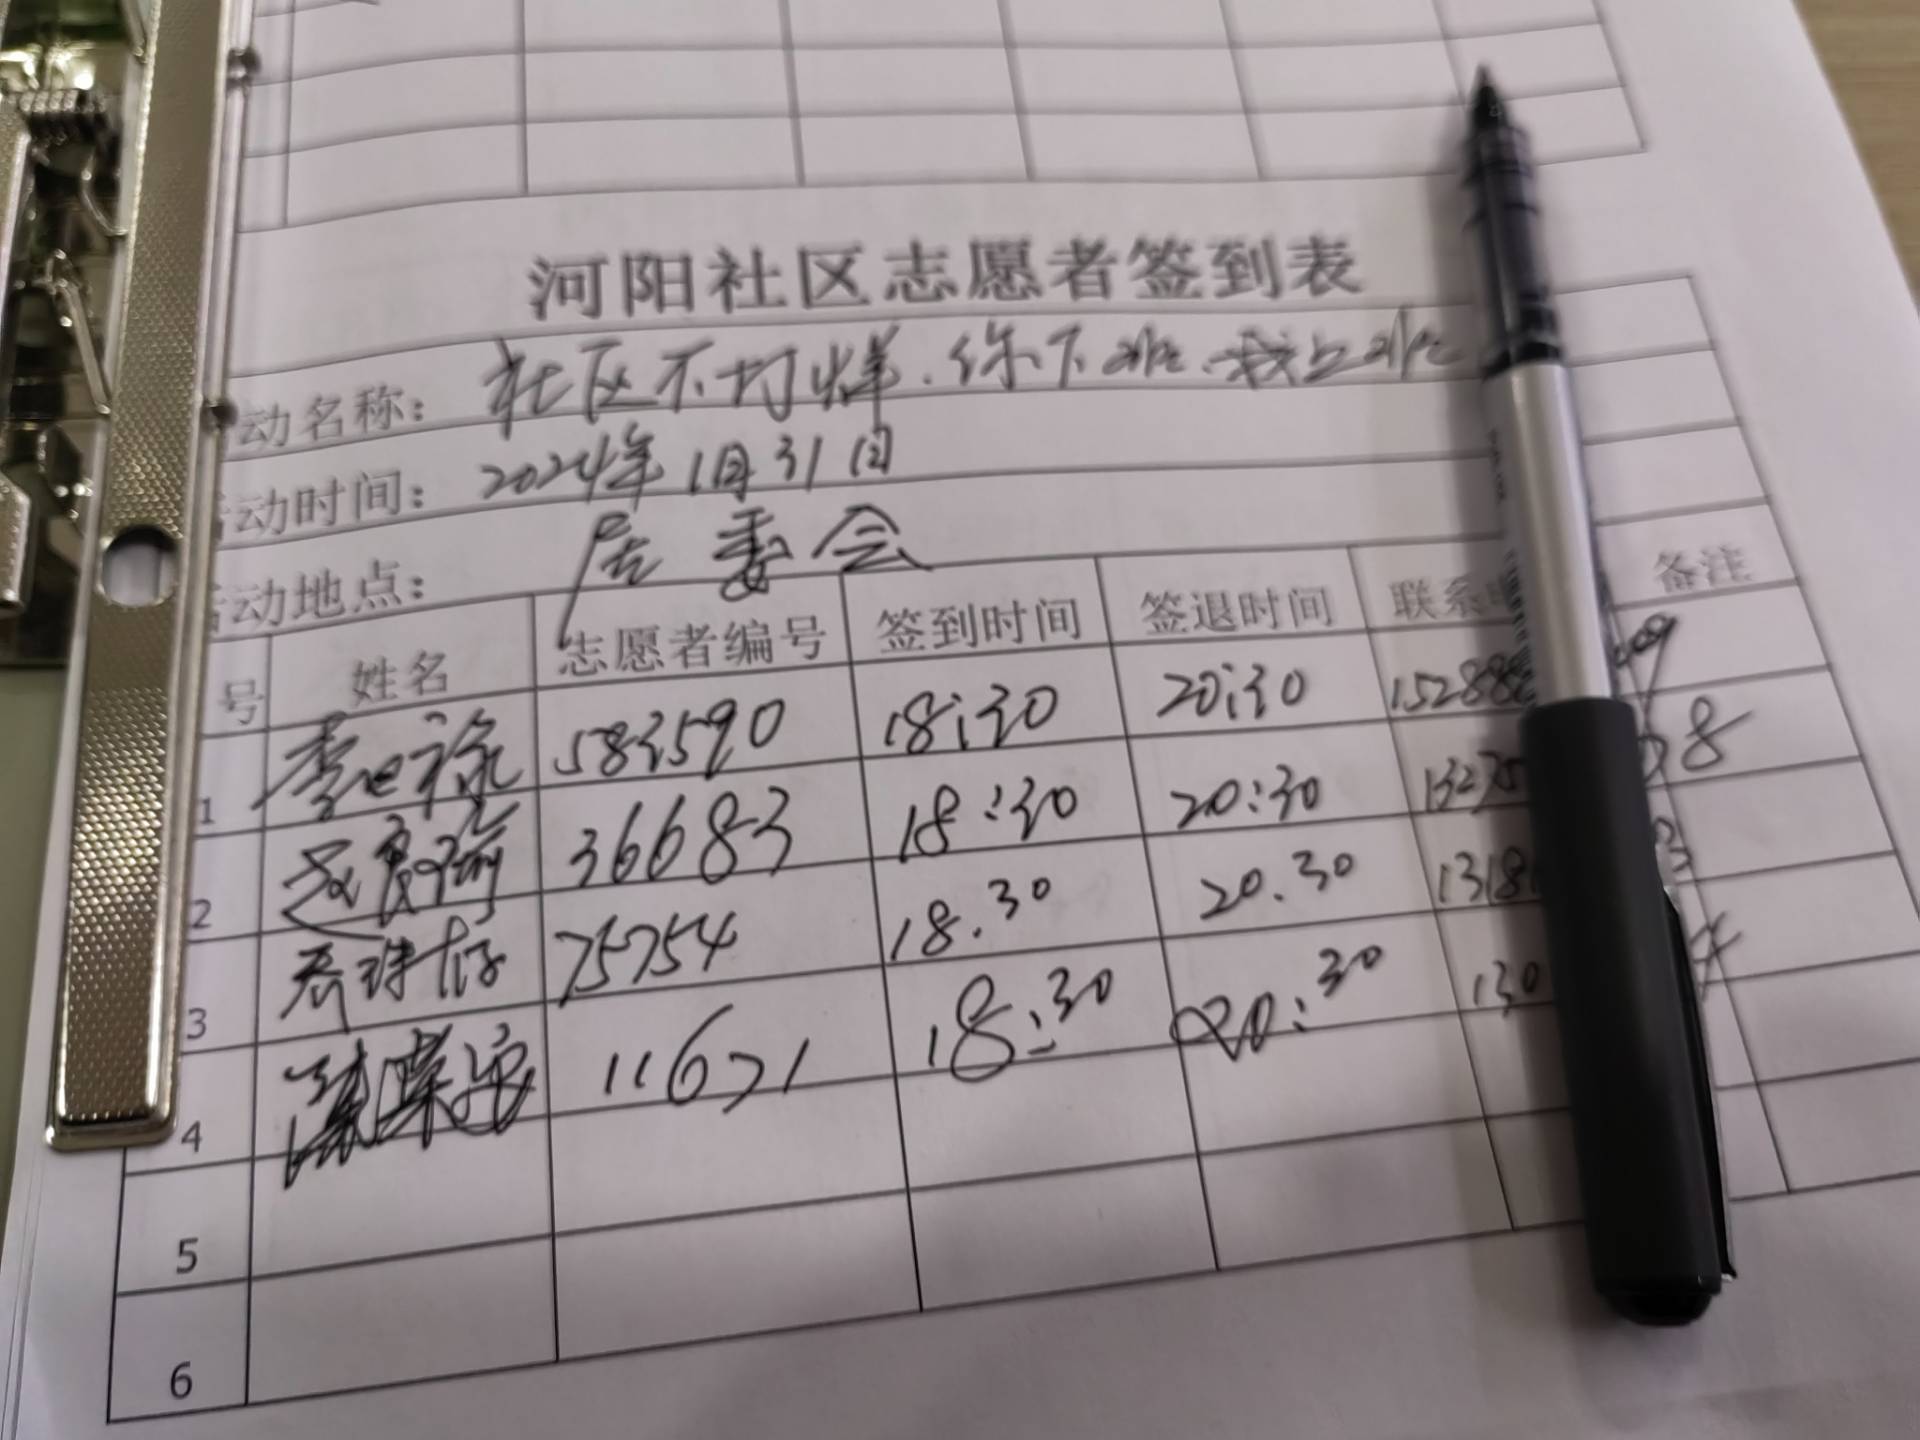 河阳社区志愿者签到表
动名称： 社区不打烊.你下班.我上班
活动时间： 2024年1月31日
活动地点： 居委会
号 姓名 志愿者编号 签到时间 签退时间 联系 备注
1 583590 18:30 20:30 152888
2 36683 18:30 20:30 13275
3 75754 18.30 20.30 1318
4 11671 18:30 20:30 130
5
6